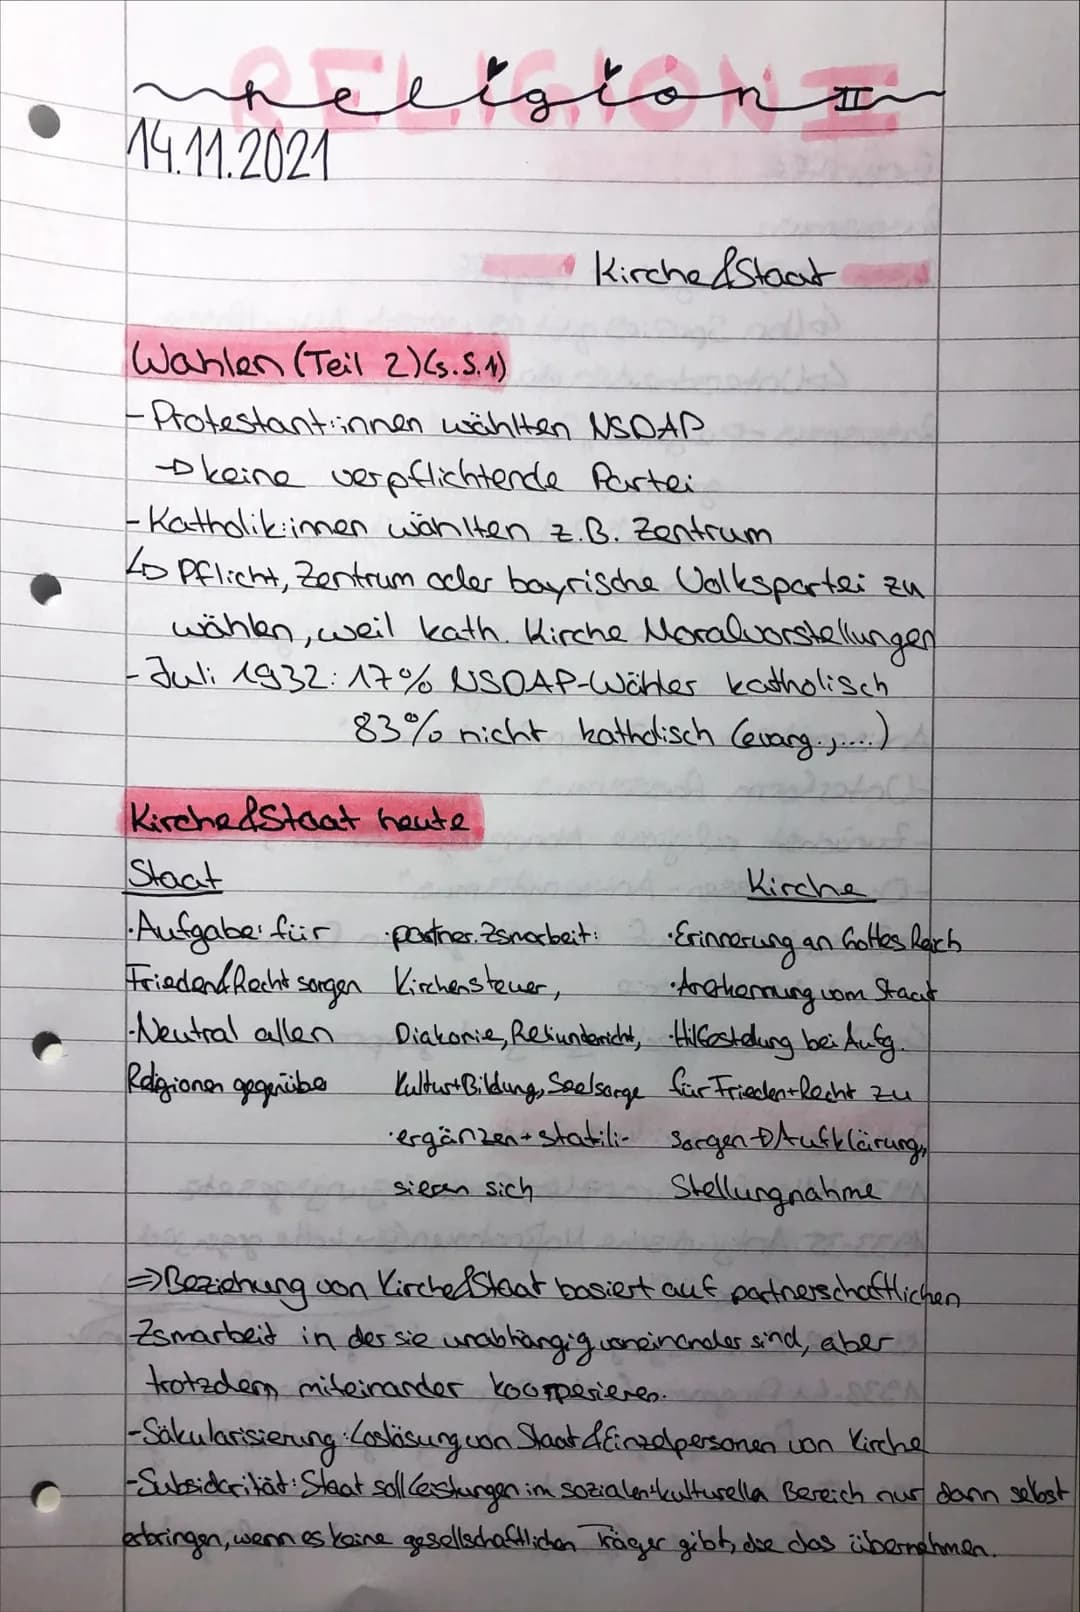 RELIGION II
religion II
14.11.2021
Kirche & Staat
Wahlen (Teil 2) (s. S. 1)
- Protestant:innen wählten NSDAP
→ keine verpflichtende Partei
- Katholik:innen wählten z.B. Zentrum
↳ Pflicht, Zentrum oder bayrische Volkspartei zu
wählen, weil kath. Kirche Moralvorstellungen
- Juli 1932: 17% NSDAP-Wähler katholisch
83% nicht katholisch (evang., ....)
Kirche & Staat heute
Staat Kirche
· Aufgabe: für · partner. Zsmarbeit: · Erinnerung an Gottes Reich
Frieden & Recht sorgen Kirchensteuer, · Anerkennung vom Staat
· Neutral allen Diakonie, Reliunterricht, · Hilfestellung bei Aufg.
Religionen gegenübe Kultur+Bildung, Seelsorge für Frieden+Recht zu
· ergänzen + stabili- sorgen → Aufklärung,
sieren sich Stellungnahme
⇒ Beziehung von Kirche & Staat basiert auf partnerschaftlichen
Zsmarbeit in der sie unabhängig voneinander sind, aber
trotzdem miteinander kooperieren.
- Säkularisierung: Loslösung von Staat & Einzelpersonen von Kirche
- Subsidarität: Staat soll Leistungen im sozialen+kulturella Bereich nur dann selbst
erbringen, wenn es keine gesellschaftlichen Träger gibt, die das übernehmen.